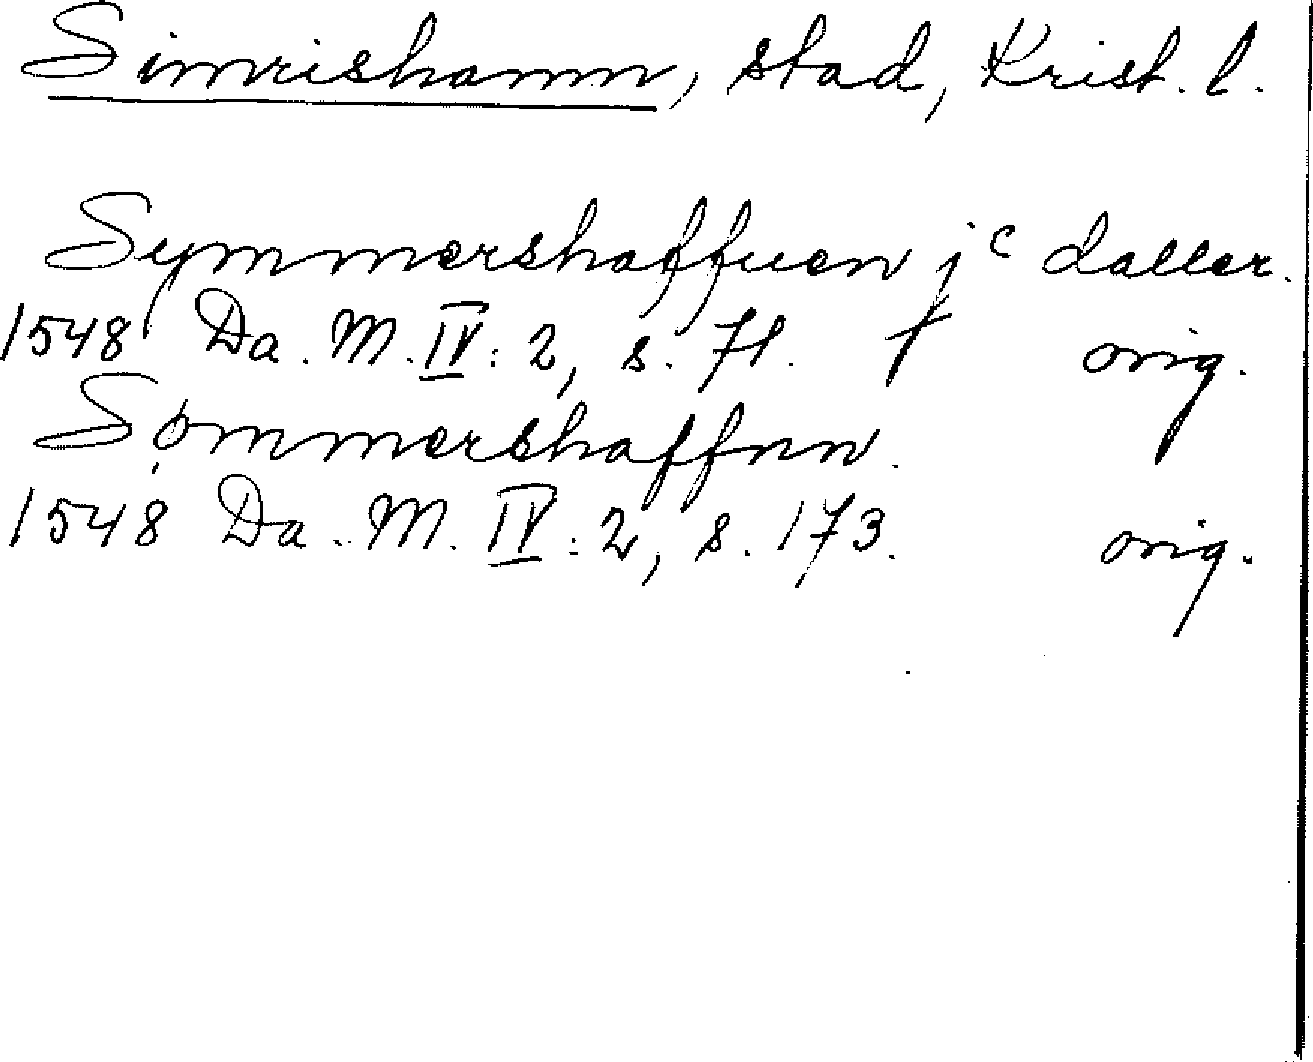 Simrishamn, stad, Krist. l.
Symmershaffuen jᶜ daller.
1548 Da. M. IV: 2, s. 71. orig.
Sømmershaffnn.
1548 Da. M. IV: 2, s. 173. orig.